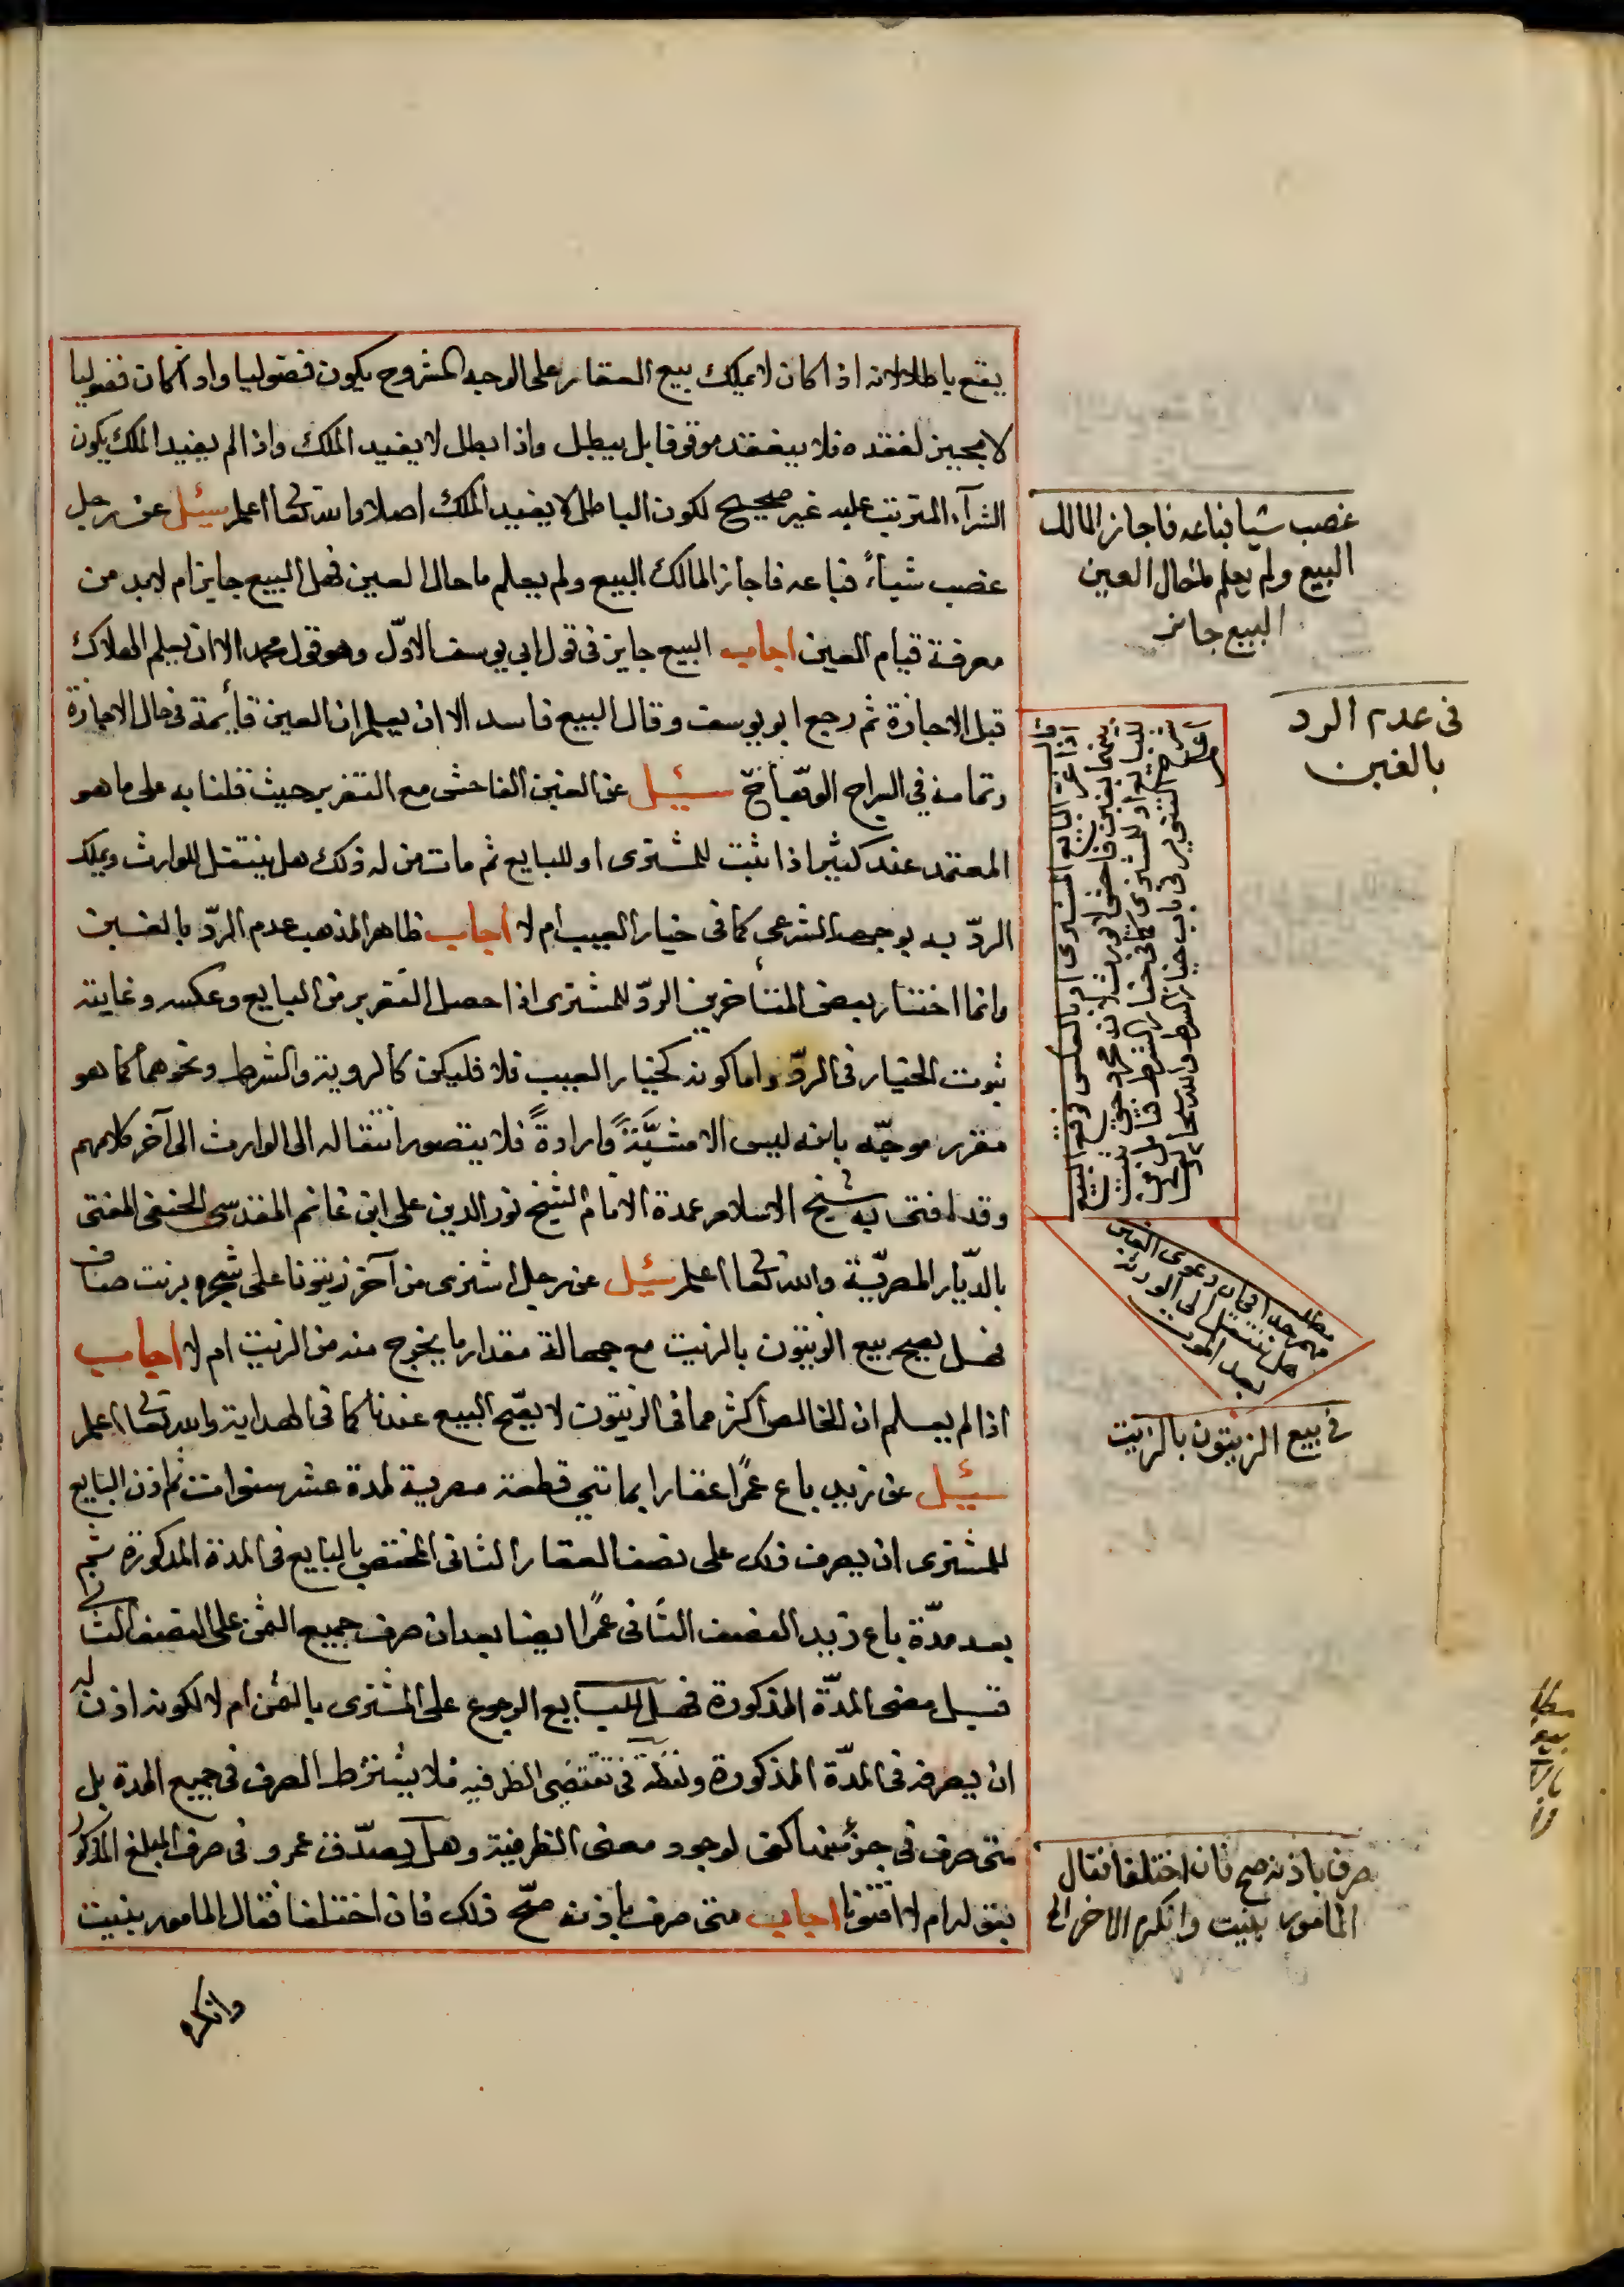 يقع باطلا لانه اذا كان لا يملك بيع العقار على الوجه المشروح يكون فضوليا واذا كان فضوليا
لا مجيز لعقده فلا ينعقد موقوفا بل يبطل واذا بطل لا يفيد الملك واذا لم يفيد الملك يكون
الشرآء المترتب عليه غير صحيح لكون الباطل لا يفيد الملك اصلا والله تعا اعلم سئيل عن رجل
غصب شيأً فباعه فاجاز المالك البيع ولم يعلم ما حال العين فهل البيع جايز ام لابد من
معرفة قيام العين اجاب البيع جايز في قول ابي يوسف الاوّل وهو قول محمد الا ان يعلم الهلاك
قبل الاجازة ثم رجع ابو يوسف وقال البيع فاسد الا ان يعلم ان العين قائمة في حال الاجازة
وتمامه في السراج الوهّاج سئيل عن الغبن الفاحش مع التغرير حيث قلنا به على ما هو
المعتمد عند كثير اذا ثبت للمشترى او للبايع ثم مات من له ذلك هل ينتقل للوارث ويملك
الردّ به بوجهه الشرعي كما في خيار العيب ام لا اجاب ظاهر المذهب عدم الردّ بالغبن
وانما اختار بعض المتأخرين الردّ للمشترى اذا حصل التغرير من البايع وعكسه وغايته
ثبوت الخيار في الردّ واما كونه كخيار العيب فلا فليكن كالروية والشرط ونحوهما كما هو
مقرر موجّه بانه ليس الا مشيَّئةً وارادةً فلا يتصور انتقاله الى الوارث الى آخر كلامهم
وقد افتى به شيخ الاسلام عمدة الانام الشيخ نور الدين على ابن غانم المقدسي الحنفى المفتى
بالدّيار المصريّة والله تعا اعلم سئيل عن رجل اشترى من آخر زيتونا على شجره بزيت صاف
فهل يصح بيع الزيتون بالزيت مع جهالة مقدار ما يخرج منه من الزيت ام لا اجاب
اذا لم يعلم ان الخالص اكثر مما في الزيتون لا يصّح البيع عندنا كما في الهداية والله تعا اعلم
سئيل عن زيد باع عمرًا عقارا بماتي قطعة مصرية لمدة عشر سنوات ثم اذن البايع
للمشترى ان يصرف ذلك على نصف العقار الثاني المختص بالبايع في المدة المذكورة ثم
بعد مدّة باع زيد النصف الثاني عمرًا ايضا بعد ان صرف جميع الثمن على النصف الثاني
قبل مضى المدّة المذكورة فهل للبايع الرجوع على المشترى بالثمن ام لا لكونه اذن له
ان يصرفه في المدّة المذكورة ولفظة في تقتضى الظرفيه فلا يشترط الصرف في جميع المدة بل
متى صرف في جزء منها كفى لوجود معنى الظرفية وهل يصدّق عمرو في صرف المبلغ المذكور
بيمينه ام لا افتونا اجاب متى صرف باذنه صحّ ذلك فان اختلفا فقال المامور بنيت
وانكره
غصب شيا فباعه فاجاز المالك
البيع ولم يعلم ما حال العين
البيع جائز
في عدم الرد
بالغبن
اذا غر البايع المشترى او بالعكس ووقع البيع
بينهما بغبن فاحش
للبايع او للمشترى كما في خيار الشرط
شرح التنوير في باب خيار الشرط والله سبحانه
مطلب
مهم جدا في ان دعوى الغبن
هل تنتقل الى الورثة
بعد الموت
في بيع الزيتون بالزيت
صرف باذنه صح فان اختلفا فقال
المامور بنيت وانكر الاخر الخ